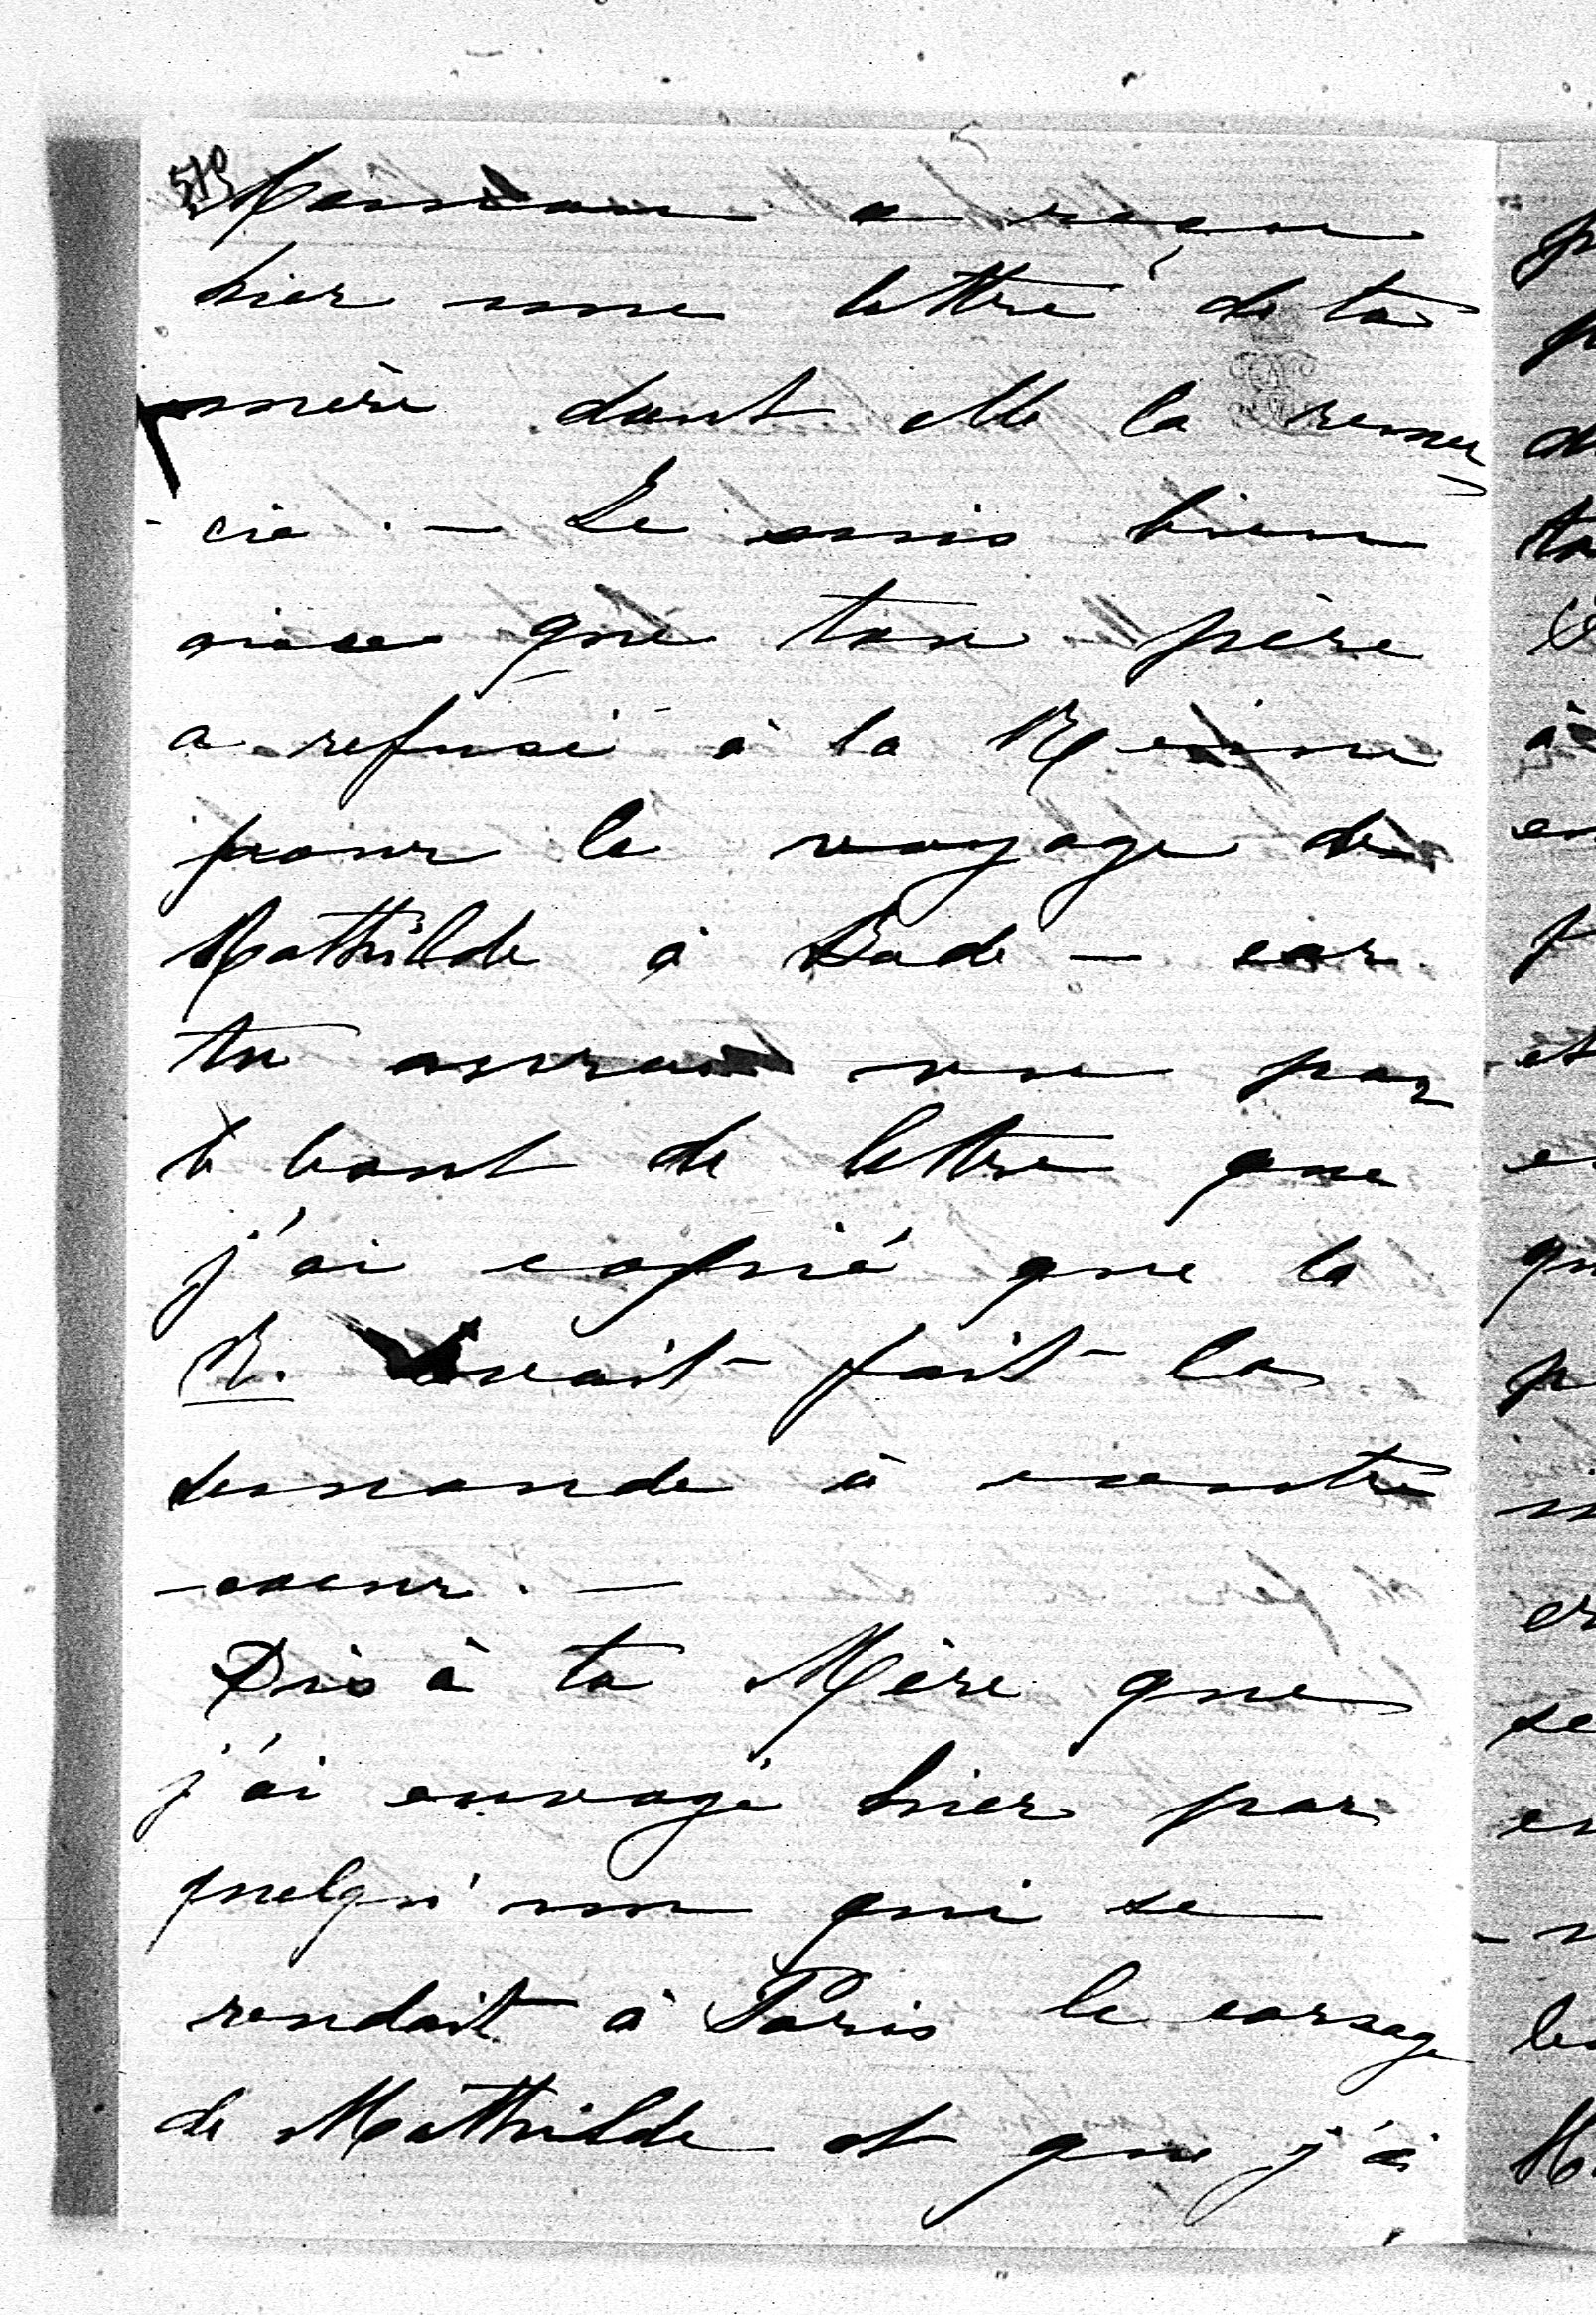 579
Maman a reçu
hier une lettre de ta
mère dont elle la remer
-cie. — Je suis bien
aise que ton père
a refusé à la Reine
pour le voyage de
Mathilde à Bade — car
tu auras vu par
le bout de lettre que
j'ai copié que la
R. avait fait la
demande à contre
-coeur. —
Dis à ta Mère que
j'ai envoyé hier par
quelqu'un qui se
rendait à Paris le corsage
de Mathilde et que j'ai